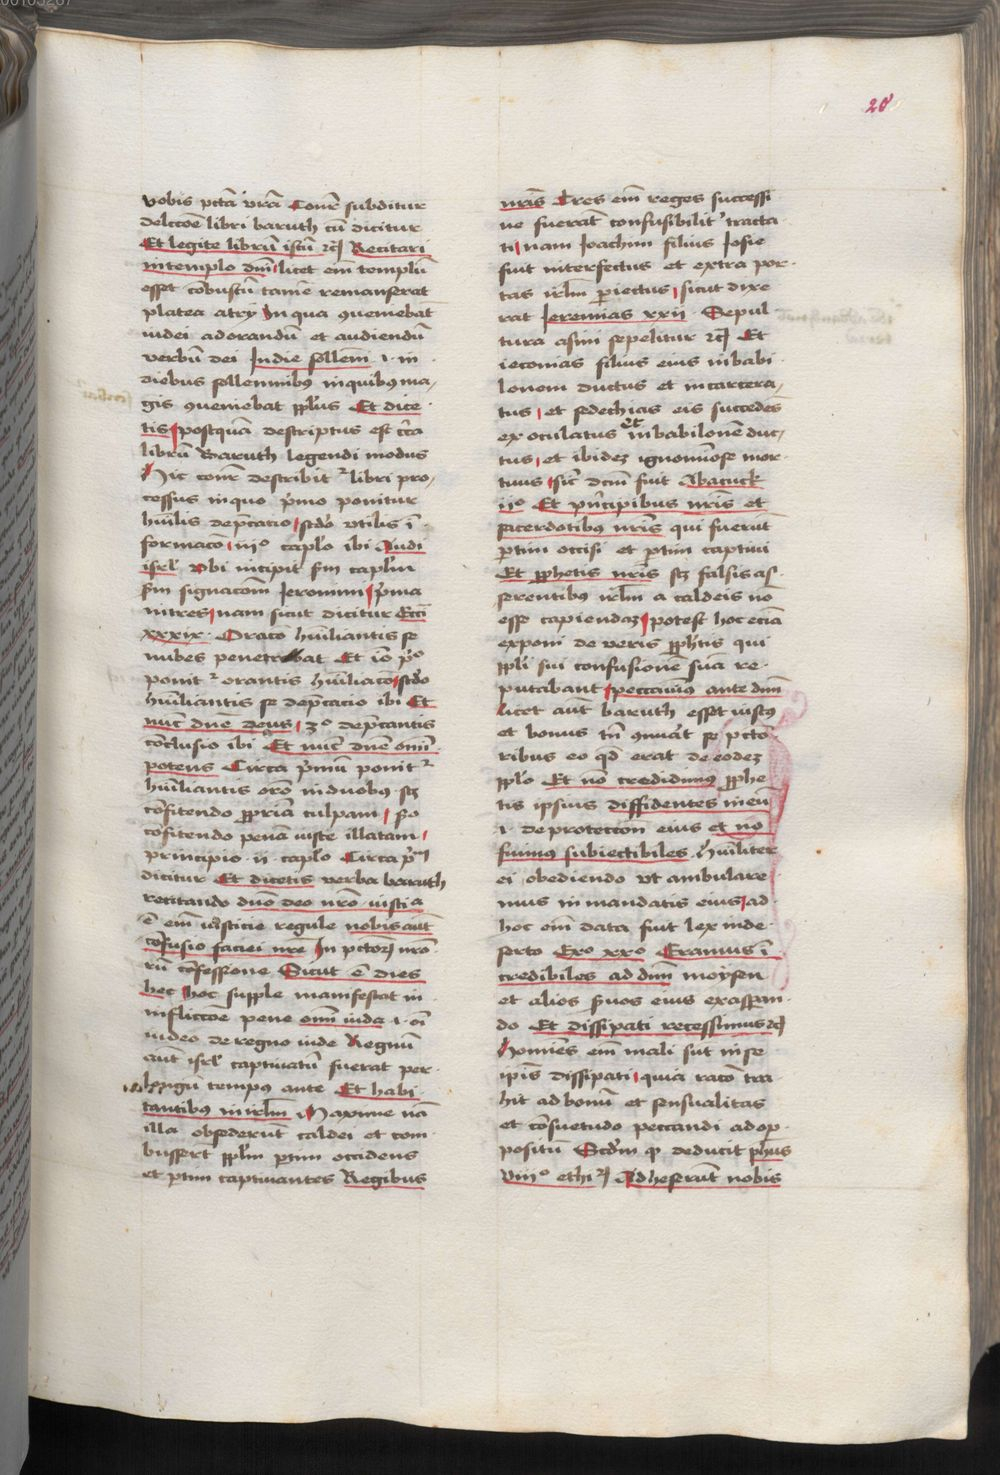 28
vobis pctā vrā Conr̄ subditur
delcc̄oē libri baruth cū dicitur
Et legite librū istū ⁊c̄ Recitari
in templo dm̄ licet em̄ templū
esset cōbustū tamē remanserat
platea atry In qua ꝯueniebāt
iudei adorandū et audiendū
verbū dei In die sollem̄ .i. in
diebus sollemnibꝰ in quibus ma,
gis ꝯueniebat ppl̄us Et dice
tis postquā descriptus est cc̄a
librū Baruth legendi modus
Hic conr̄ describit᷑ libri pro,
cessus in quo p̄mo ponitur
hūilis dep̄catio scd̓o vtilis ī
formac̄o iijº caplo ibi Audi
isrl̄ vbi incipit sm̄ capl̄m
sm̄ signac̄om̄ Jeronimi p̄ma
in tres nam sicut dicitur Ecci
xxxix. Orac̄o hūiliantis se
nubes penetrabat Et iō p̄º
ponit᷑ orantis hūiliac̄o scd̓o
hūiliantis se dep̄catio ibi Et
nūc dn̄e deus 3º dep̄cantis
cōclusio ibi Et nūc dn̄e om̄i
potens Circa p̄mū ponit᷑
hūiliantis orō in duobus sꝫ
cōfitendo ꝓpriā culpam So
cōfitendo penā iuste illatam
principio ij caplo Circa p̄m
dicitur Et dicetis verba baruth
recitando dn̄o deo nr̄o iusti a
ē em̄ iusticie regule nobis aūt
cōfusio faciei nr̄e In pctōꝝ nrō
rū cōfessione Sicut ē dies
hec hoc supple manifestat in
inflicc̄oē pene om̄i iuda .i. oī
iudeo de regno iude Regnū
aūt isrl̄ captiuatū fuerat per
longū tempꝰ ante Et habi
tantibꝰ in irl̄m Maxime nā
illa obsederūt caldei et com
busserūt ppl̄m ptim occidens
et ptim captiuantes Regibus
nr̄is Tres em̄ reges successi
ue fuerāt confusibilit᷑ tracta
ti nam Joachim filius Josie
fuit interfectus et extra por
tas irl̄m ꝓiectus sicut dixe
rat Jeremias xxij Sepul
tura asini sepelitur ⁊c̄ Et
ieconias filius eius in babi
lonem ductus et incarcera,
tus et sedechias eis succedēs
ex oculatus et in babilonē duc,
tus et ibidez ignominiose mor
tuus sic̄ dcm̄ fuit Abacuck
ijº Et pn̄cipibus nr̄is et
sacerdotibꝰ nr̄is qui fuerūt
ptim occisi et ptim captiui
Et ꝓphetis nr̄is sꝫ falsis as
serentibus irl̄m a caldeis nō
esse capiendaꝫ potest hoc eciā
exponi de veris ꝓphetis qui
ppl̄i sui confusionē suā re
putabant peccauimꝰ ante dm̄
licet aūt baruth esset iustꝰ
et bonus tn̄ ꝯnūat se pctō
ribus eo qd̓ erat de eodeꝫ
ppl̄o Et nō credidimꝰ ꝓphe
tis ipsius diffidentes in eū
.i. de protecc̄oē eius et nō
fuimꝰ subiectibiles hūiliter
ei obediendo vt ambulare
mus in mandatis eius ad
hoc em̄ data fuit lex in de
serto Exo xxº Eramus ī
credibiles ad dm̄ moysen
et alios s̄uos eius exaspan
do Et dissipati recessimus ⁊c̄
Homines em̄ mali sūt in se
ipīs dissipati quia rac̄o tra
hit ad bonū et sensualitas
et cōsuetudo peccandi ad op
positū Scd̓m qᷓ deducit ph̄us
viijº ethiꝝ Adheserūt nobis